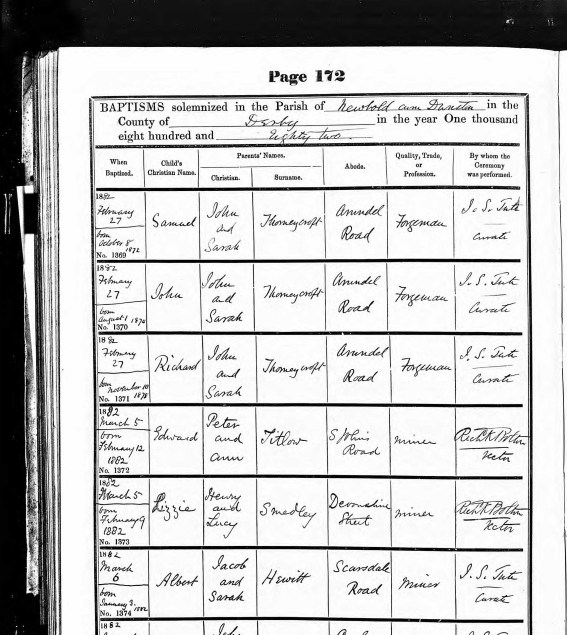 Page 172
BAPTISMS solemnized in the Parish of Newbold cum Dunston in the
County of Derby in the year One thousand
eight hundred and Eighty two
When Baptized.
Child's Christian Name.
Parents' Names.
Christian.
Surname.
Abode.
Quality, Trade, or Profession.
By whom the Ceremony was performed.
1882
February
27
born
October 8
1872
No. 1369
Samuel
John
and
Sarah
Thorneycroft
Arundel
Road
Forgeman
J. S. Tute
Curate
1882
February
27
born
August 1 1870
No. 1370
John
John
and
Sarah
Thorneycroft
Arundel
Road
Forgeman
J. S. Tute
Curate
1882
February
27
born
November 10
1878
No. 1371
Richard
John
and
Sarah
Thorneycroft
Arundel
Road
Forgeman
J. S. Tute
Curate
1882
March 5
born
February 12
1882
No. 1372
Edward
Peter
and
Ann
Titlow
S Johns
Road
Miner
Richd K Bolton
Rector
1882
March 5
born
February 9
1882
No. 1373
Lizzie
Henry
and
Lucy
Smedley
Devonshire
Street
Miner
Richd K Bolton
Rector
1882
March
6
born
January 3. 1882
No. 1374
Albert
Jacob
and
Sarah
Hewitt
Scarsdale
Road
Miner
J. S. Tute
Curate
1882
John